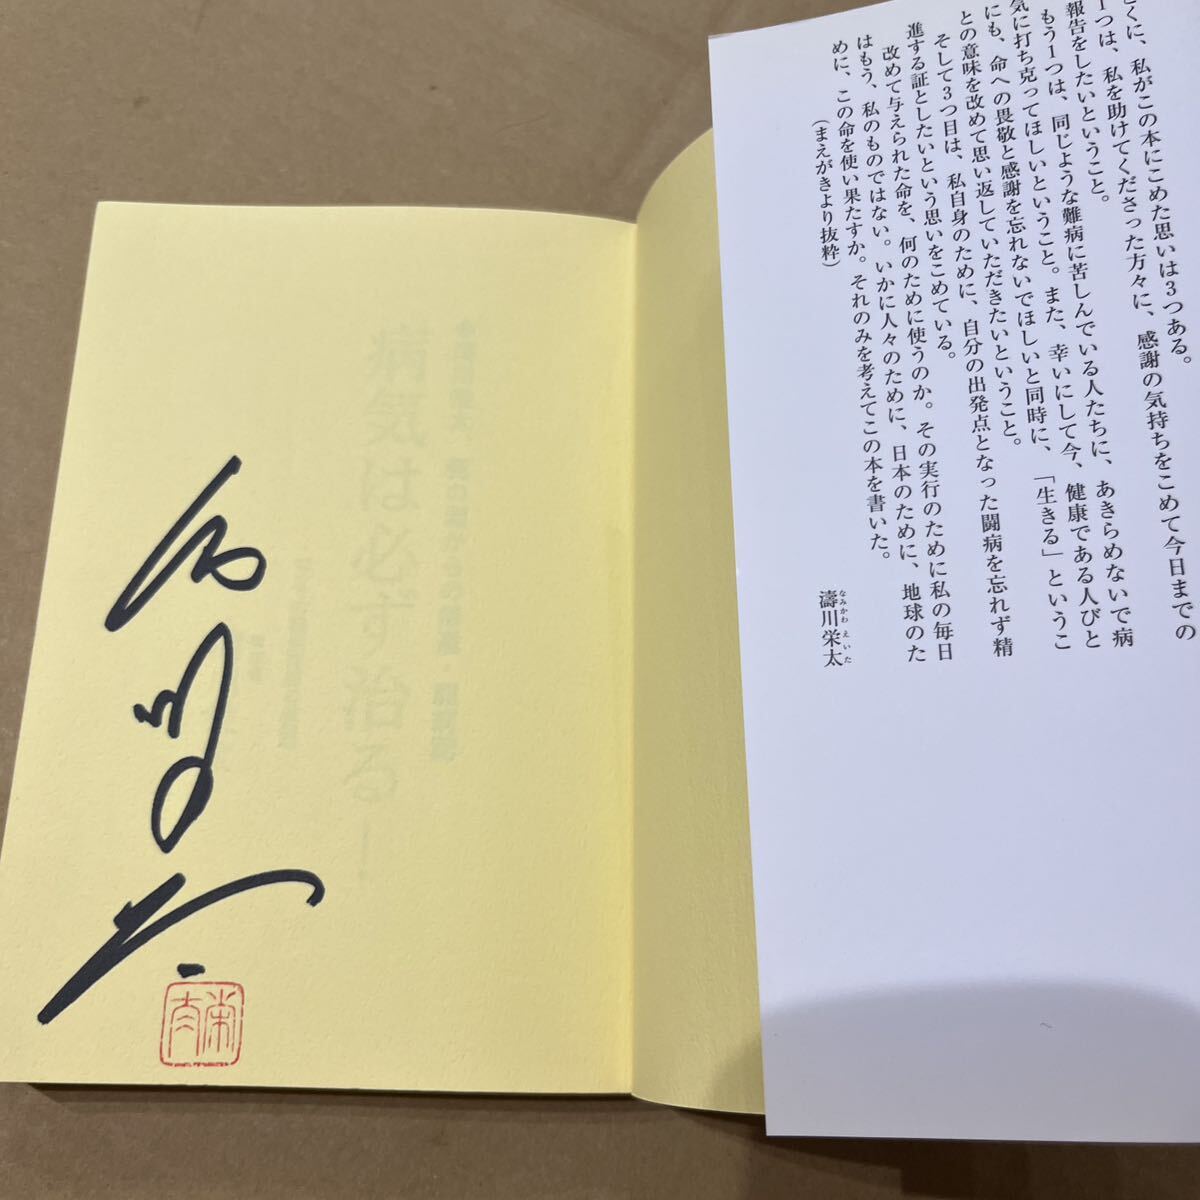 くに、私がこの本にこめた思いは3つある。
1つは、私を助けてくださった方々に、感謝の気持ちをこめて今日までの
報告をしたいということ。
もう1つは、同じような難病に苦しんでいる人たちに、あきらめないで病
気に打ち克ってほしいということ。また、幸いにして今、健康である人びと
にも、命への畏敬と感謝を忘れないでほしいと同時に、「生きる」というこ
との意味を改めて思い返していただきたいということ。
そして3つ目は、私自身のために、自分の出発点となった闘病を忘れず精
進する証としたいという思いをこめている。
改めて与えられた命を、何のために使うのか。その実行のために私の毎日
はもう、私のものではない。いかに人々のために、日本のために、地球のた
めに、この命を使い果たすか。それのみを考えてこの本を書いた。
(まえがきより抜粋)
濤川栄太
なみかわ えいた
病気は必ず治る